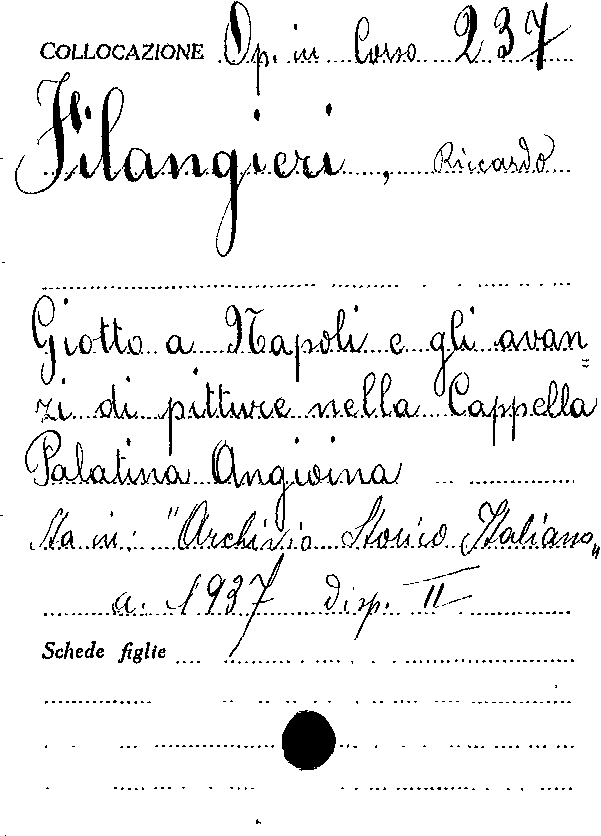 COLLOCAZIONE Op. in Corso 237
Filangieri, Riccardo
Giotto a Napoli e gli avan=
zi di pitture nella Cappella
Palatina Angioina
Sta in: "Archivio Storico Italiano"
a. 1937 disp. II
Schede figlie